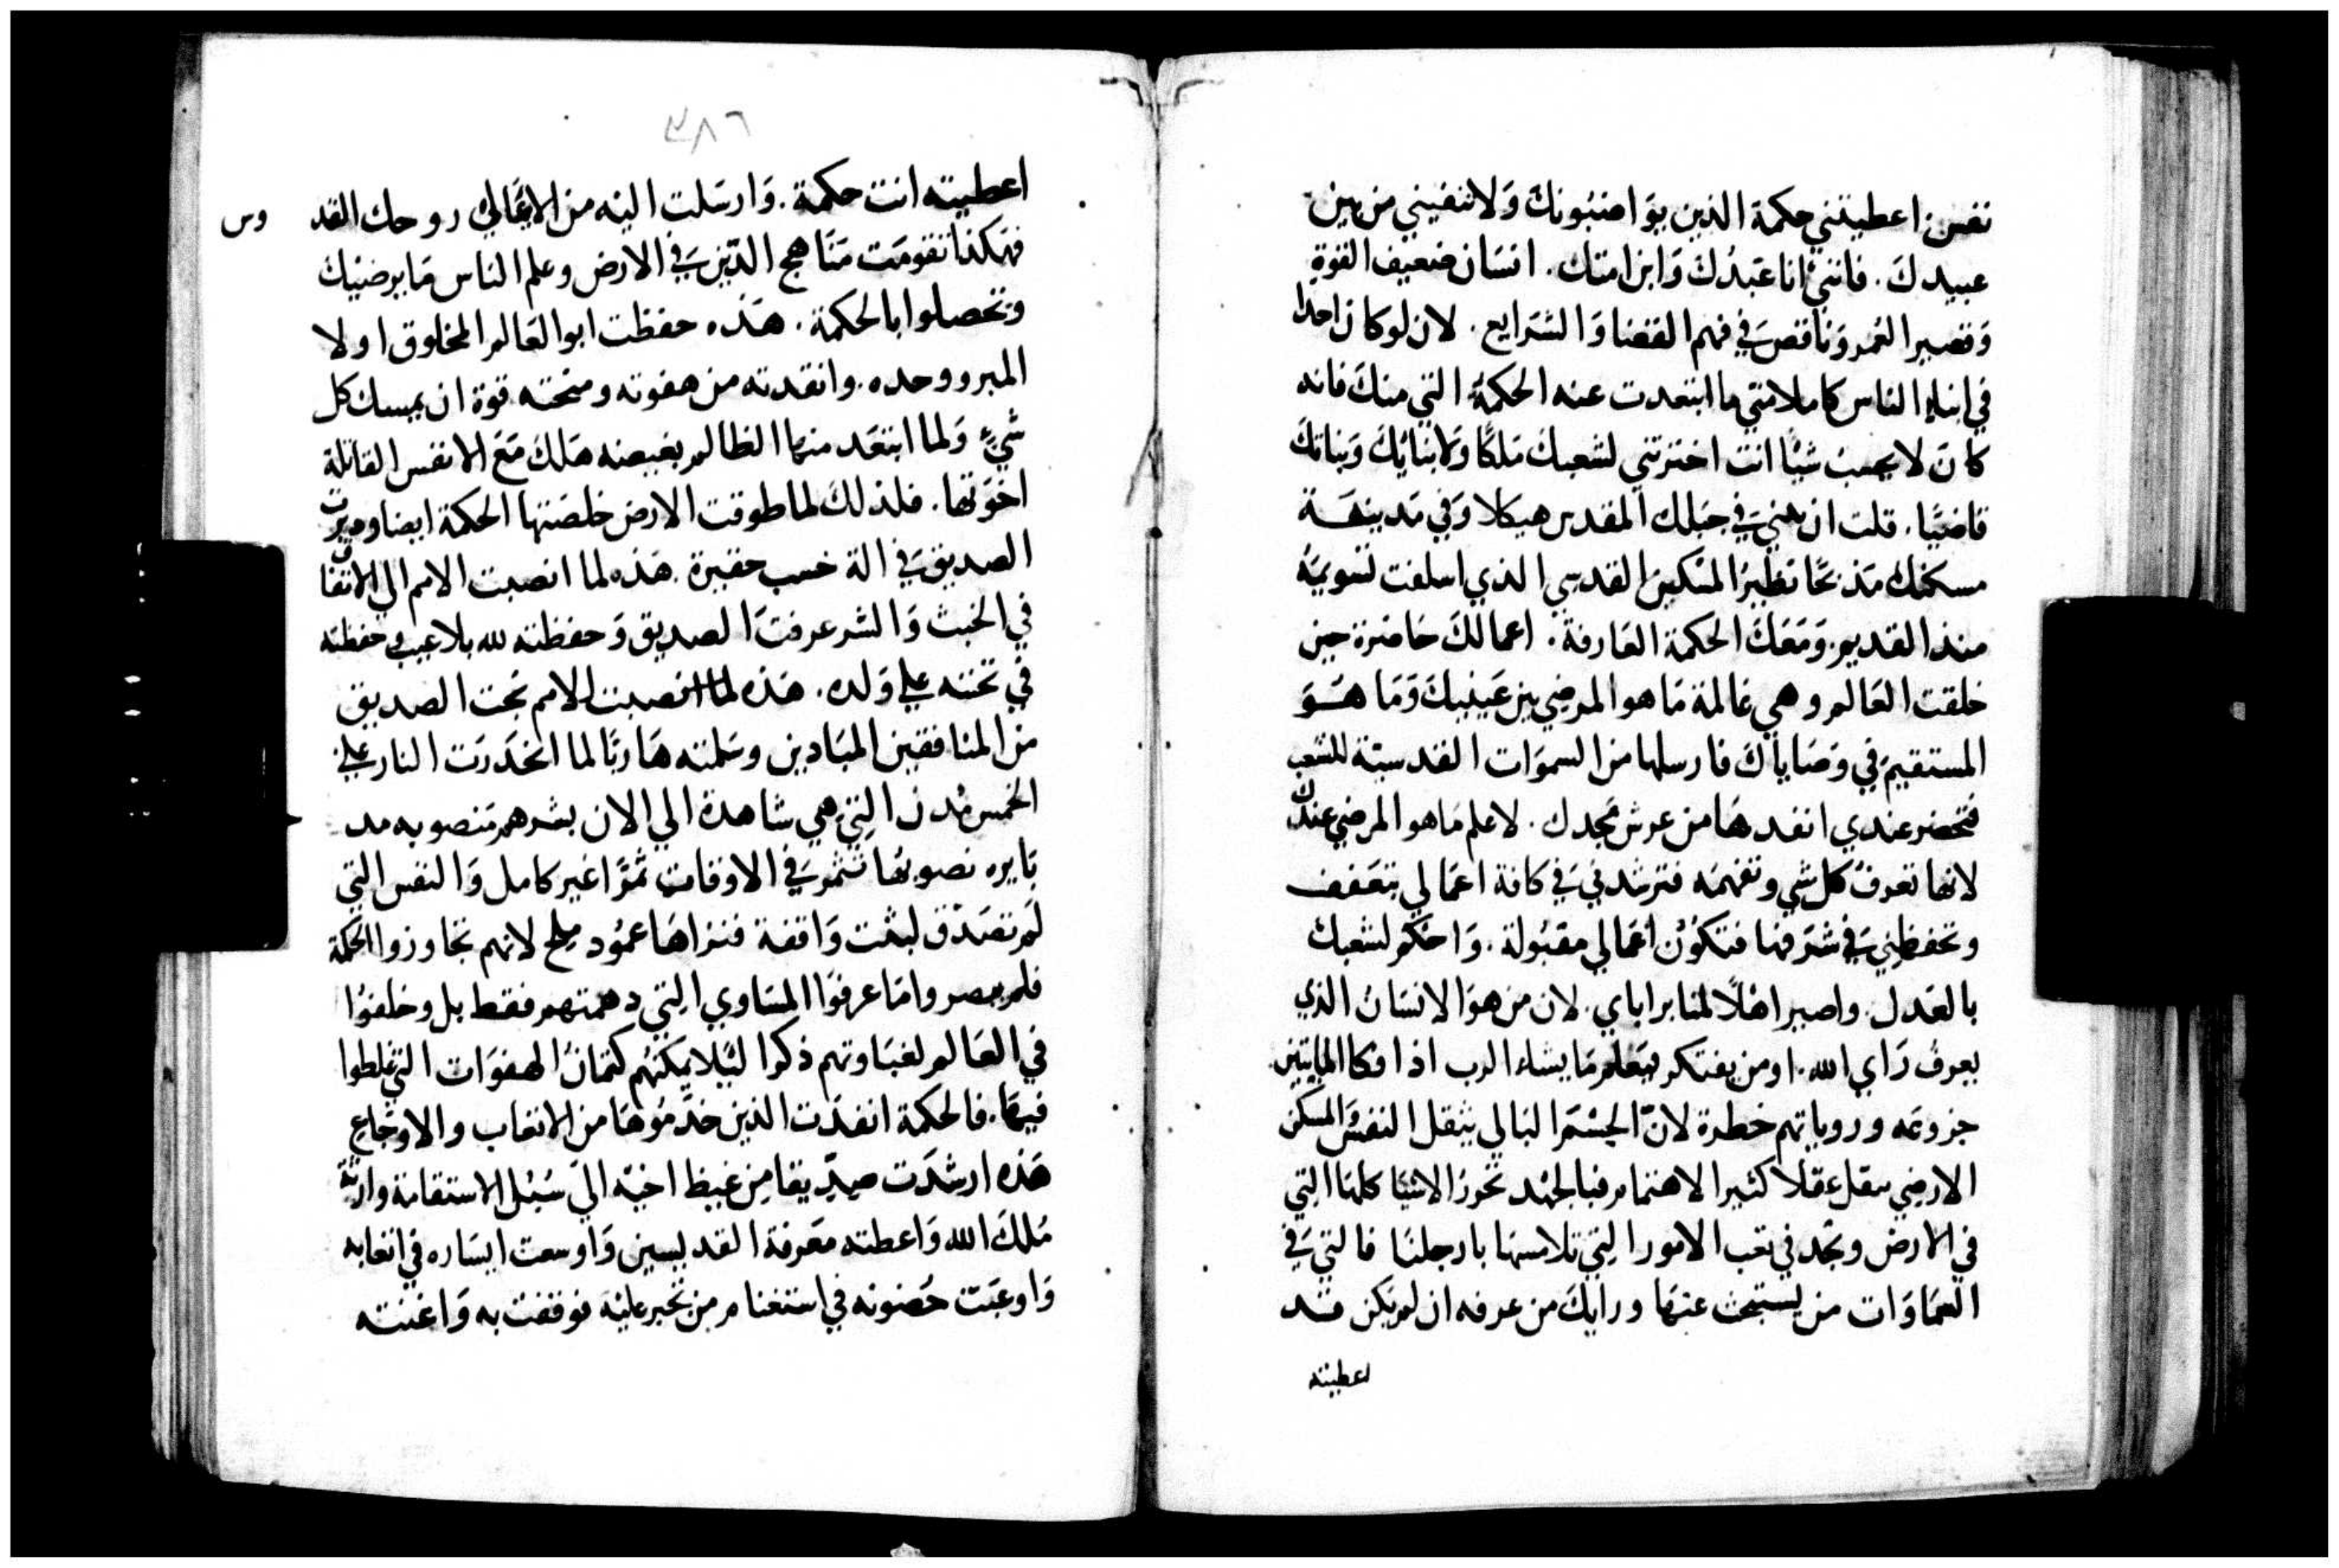 نفسن اعطيتني حكمة الذين يواضبونك ولا تنفيني من بين
عبيدك. فانني انا عبدك وابن امتك. انسان ضعيف القوة
وقصير العمر وناقص في فهم القضا والشرايع. لان لو كان احدا
في ابناء الناس كاملا متي ما ابتعدت عنه الحكمة التي منك فانه
كان لا يحسب شيًا انت اخترتني لشعبك ملكًا ولابنايك وبناتك
قاضيًا. قلت ان ابني في جبلك المقدس هيكلا وفي مدينة
مسكنك مذبحًا نظير المسكن القدسي الذي اسلفت تسويمه
منذ القديم. ومعك الحكمة العارفة. اعمالك حاضرة حين
خلقت العالم وهي عالمة ما هو المرضي بين عينيك وما هو
المستقيم في وصاياك فارسلها من السموات القدسية للشعب
فتحضر عندي انفدها من عرش مجدك. لاعلم ما هو المرضي عندك
لانها تعرف كل شي وتفهمه فترشدني في كافة اعمالي بتعفف
وتحفظني في شرفها فتكون اعمالي مقبولة. واحكم لشعبك
بالعدل. واصير اهلًا لمنابر اباي. لان من هو الانسان الذي
يعرف راي الله. او من يفتكر يتعلم ما يشاء الرب اذ افكار المايتين
جزوعه وروياتهم خطرة لانّ الجسم البالي يثقل النفس والمسكن
الارضي يثقل عقلًا كثير الاهتمام فبالجهد نحزر الاشيا كلها التي
في الارض ونجد في تعب الامور التي تلامسها بارجلنا فالتي في
السماوات من يستبحث عنها ورايك من عرفه ان لم تكن قد
اعطيته
٣٨٦
اعطيته انت حكمة. وارسلت اليه من الاعالي روحك القد
وس
فهكذا تقومت مناهج الذين في الارض وعلم الناس ما يرضيك
وتخصلوا بالحكمة. هذه حفظت ابو العالم المخلوق اولا
المبرو وحده. وانقدته من هفوته ومنحته قوة ان يمسك كل
شيءٍ ولما ابتعد منها الظالم بغيضه هلك مع الانفس القاتلة
اخوتها. فلذلك لما طوقت الارض خلصتها الحكمة ايضا ودبرت
الصديق في الة خشب حقيرة. هذه لما انصبت الامم الي الاتفاق
في الخبث والشر عرفت الصديق وحفظته لله بلا عيب وحفظته
في تحننه علي ولده. هذه لما انصبت الامم نجت الصديق
من المنافقين المبادين وسلمته هاربًا لما انحدرت النار علي
الخمس مدن التي هي شاهدة الي الان بشرهم منصوبه مد
بايره نصوبها تثمر في الاوقات ثمرًا غير كامل والنفس التي
لم تصدق لبثت واقفة فنراها عمود ملح لانهم تجاوزوا الحكمة
فلم يبصروا ما عرفوا المساوي التي دهمتهم فقط بل وخلفوا
في العالم لغباوتهم ذكرا ليلا يمكنهم كتمان الهفوات التي غلطوا
فيها. فالحكمة انفدت الذين خدموها من الاتعاب والاوجاع
هذه ارشدت صديقا من غيظ اخيه الي سبل الاستقامة وارته
ملك الله واعطته معرفة القديسين واوسعت ايساره في اتعابه
واوعبت حضونه في استغنام من تجبر عليه فوقفت به واغنته